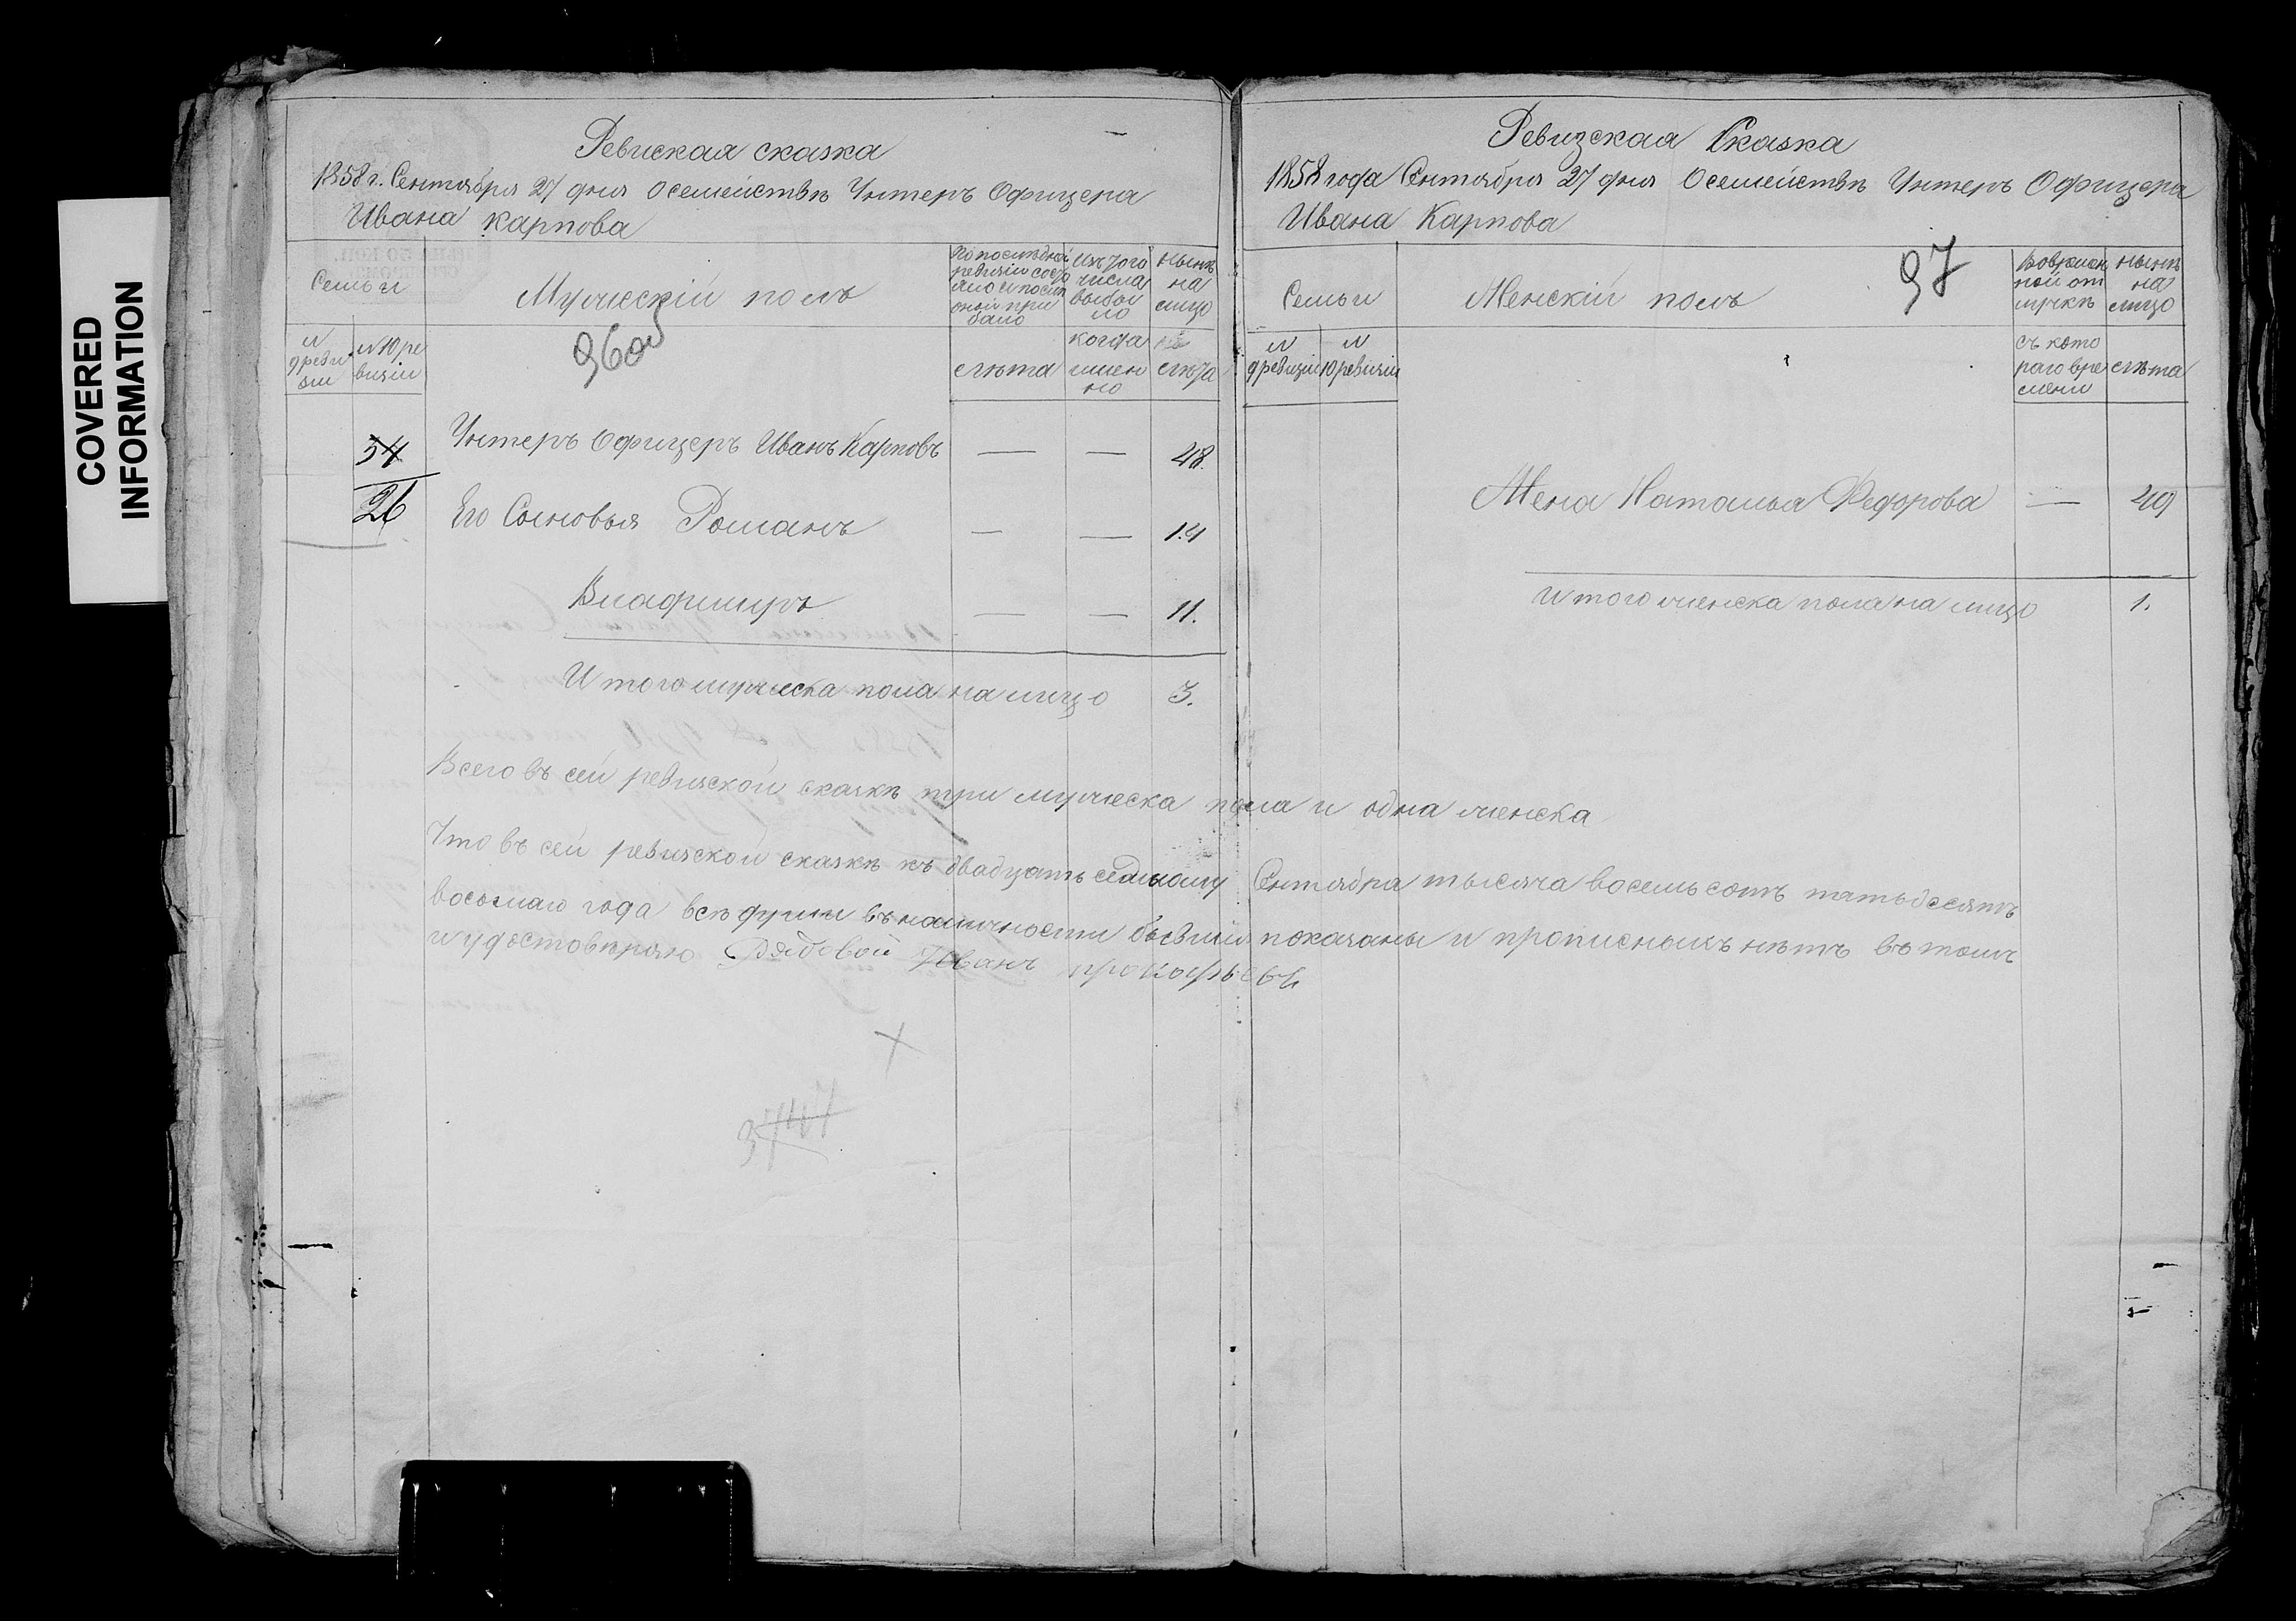 COVERED
INFORMATION
Ревиская сказка
1858 г. Сентября 27 дня Осемействѣ Унтеръ Офицера
Ивана Карпова
Семьи
Мужескій полъ
96об
По послѣдней
ревизіи состо
яло и послѣ
оной при
было
Изъ того
числа
выбы
ло
нынѣ
на
лицо
N
9 реви
зіи
N 10 ре
визіи
лѣта
когда
имен
но
лѣта
34
26
Унтеръ Офицеръ Иванъ Карповъ — — 48.
Его Сыновья Романъ — — 14
Владимиръ — — 11.
Итого мужеска пола на лицо 3.
Ревизская Сказка
1858 года Сентября 27 дня Осемействѣ Унтеръ Офицера
Ивана Карпова
97
Семьи
Женскій полъ
Вовремен
ной от
лучкѣ
нынѣ
на
лицо
N
9 ревизіи
N
10 ревизіи
съ кото
раго вре
мени
лѣта
Жена Наталья Федорова — 49
Итого женска пола на лицо 1.
Всего въ сей ревизской сказкѣ три мужеска пола и одна женска
Что въ сей ревизской сказкѣ къ двадцать седьмому Сентября тысяча восемьсотъ пятьдесятъ
восьмаго года всѣ души въ наличности бывшія показаны и прописныхъ нѣтъ въ томъ
и удостовѣряю Рядовой Иванъ прокофьевъ
3747